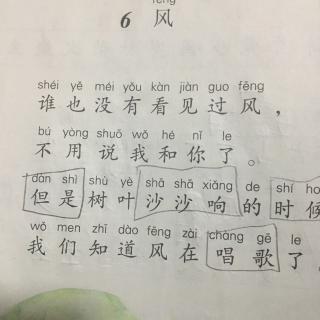 6 风
shéi yě méi yǒu kàn jiàn guo fēng
谁也没有看见过风，
bú yòng shuō wǒ hé nǐ le
不用说我和你了。
dàn shì shù yè shā shā xiǎng de shí
但是树叶沙沙响的时候
wǒ men zhī dào fēng zài chàng gē le
我们知道风在唱歌了